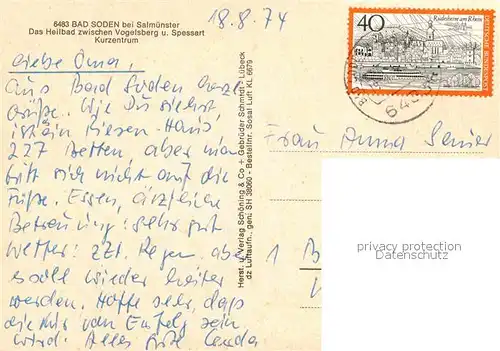 6483 BAD SODEN bei Salmünster
Das Heilbad zwischen Vogelsberg u. Spessart
Kurzentrum
18.8.74
Liebe Oma,
Aus Bad Soden herzl.
Grüße. Wie Du siehst,
ist ein Riesen-Haus,
227 Betten, aber man
tritt sich nicht auf die
Füße. Essen, ärztlichen
Betreuung: sehr gut
Wetter: zZt. Regen aber
es soll wieder heiter
werden. Hoffe sehr, daß
die Kur von Erfolg sein
wird. Alles gute
Herst. u. Verlag Schöning & Co + Gebrüder Schmidt - Lübeck
dz Luftaufn., gen. SH 38060 - Bestellnr. Sosal Luft KL 6679
40
Rüdesheim am Rhein
DEUTSCHE BUNDESPOST
Frau Anna
1
privacy protection
Datenschutz